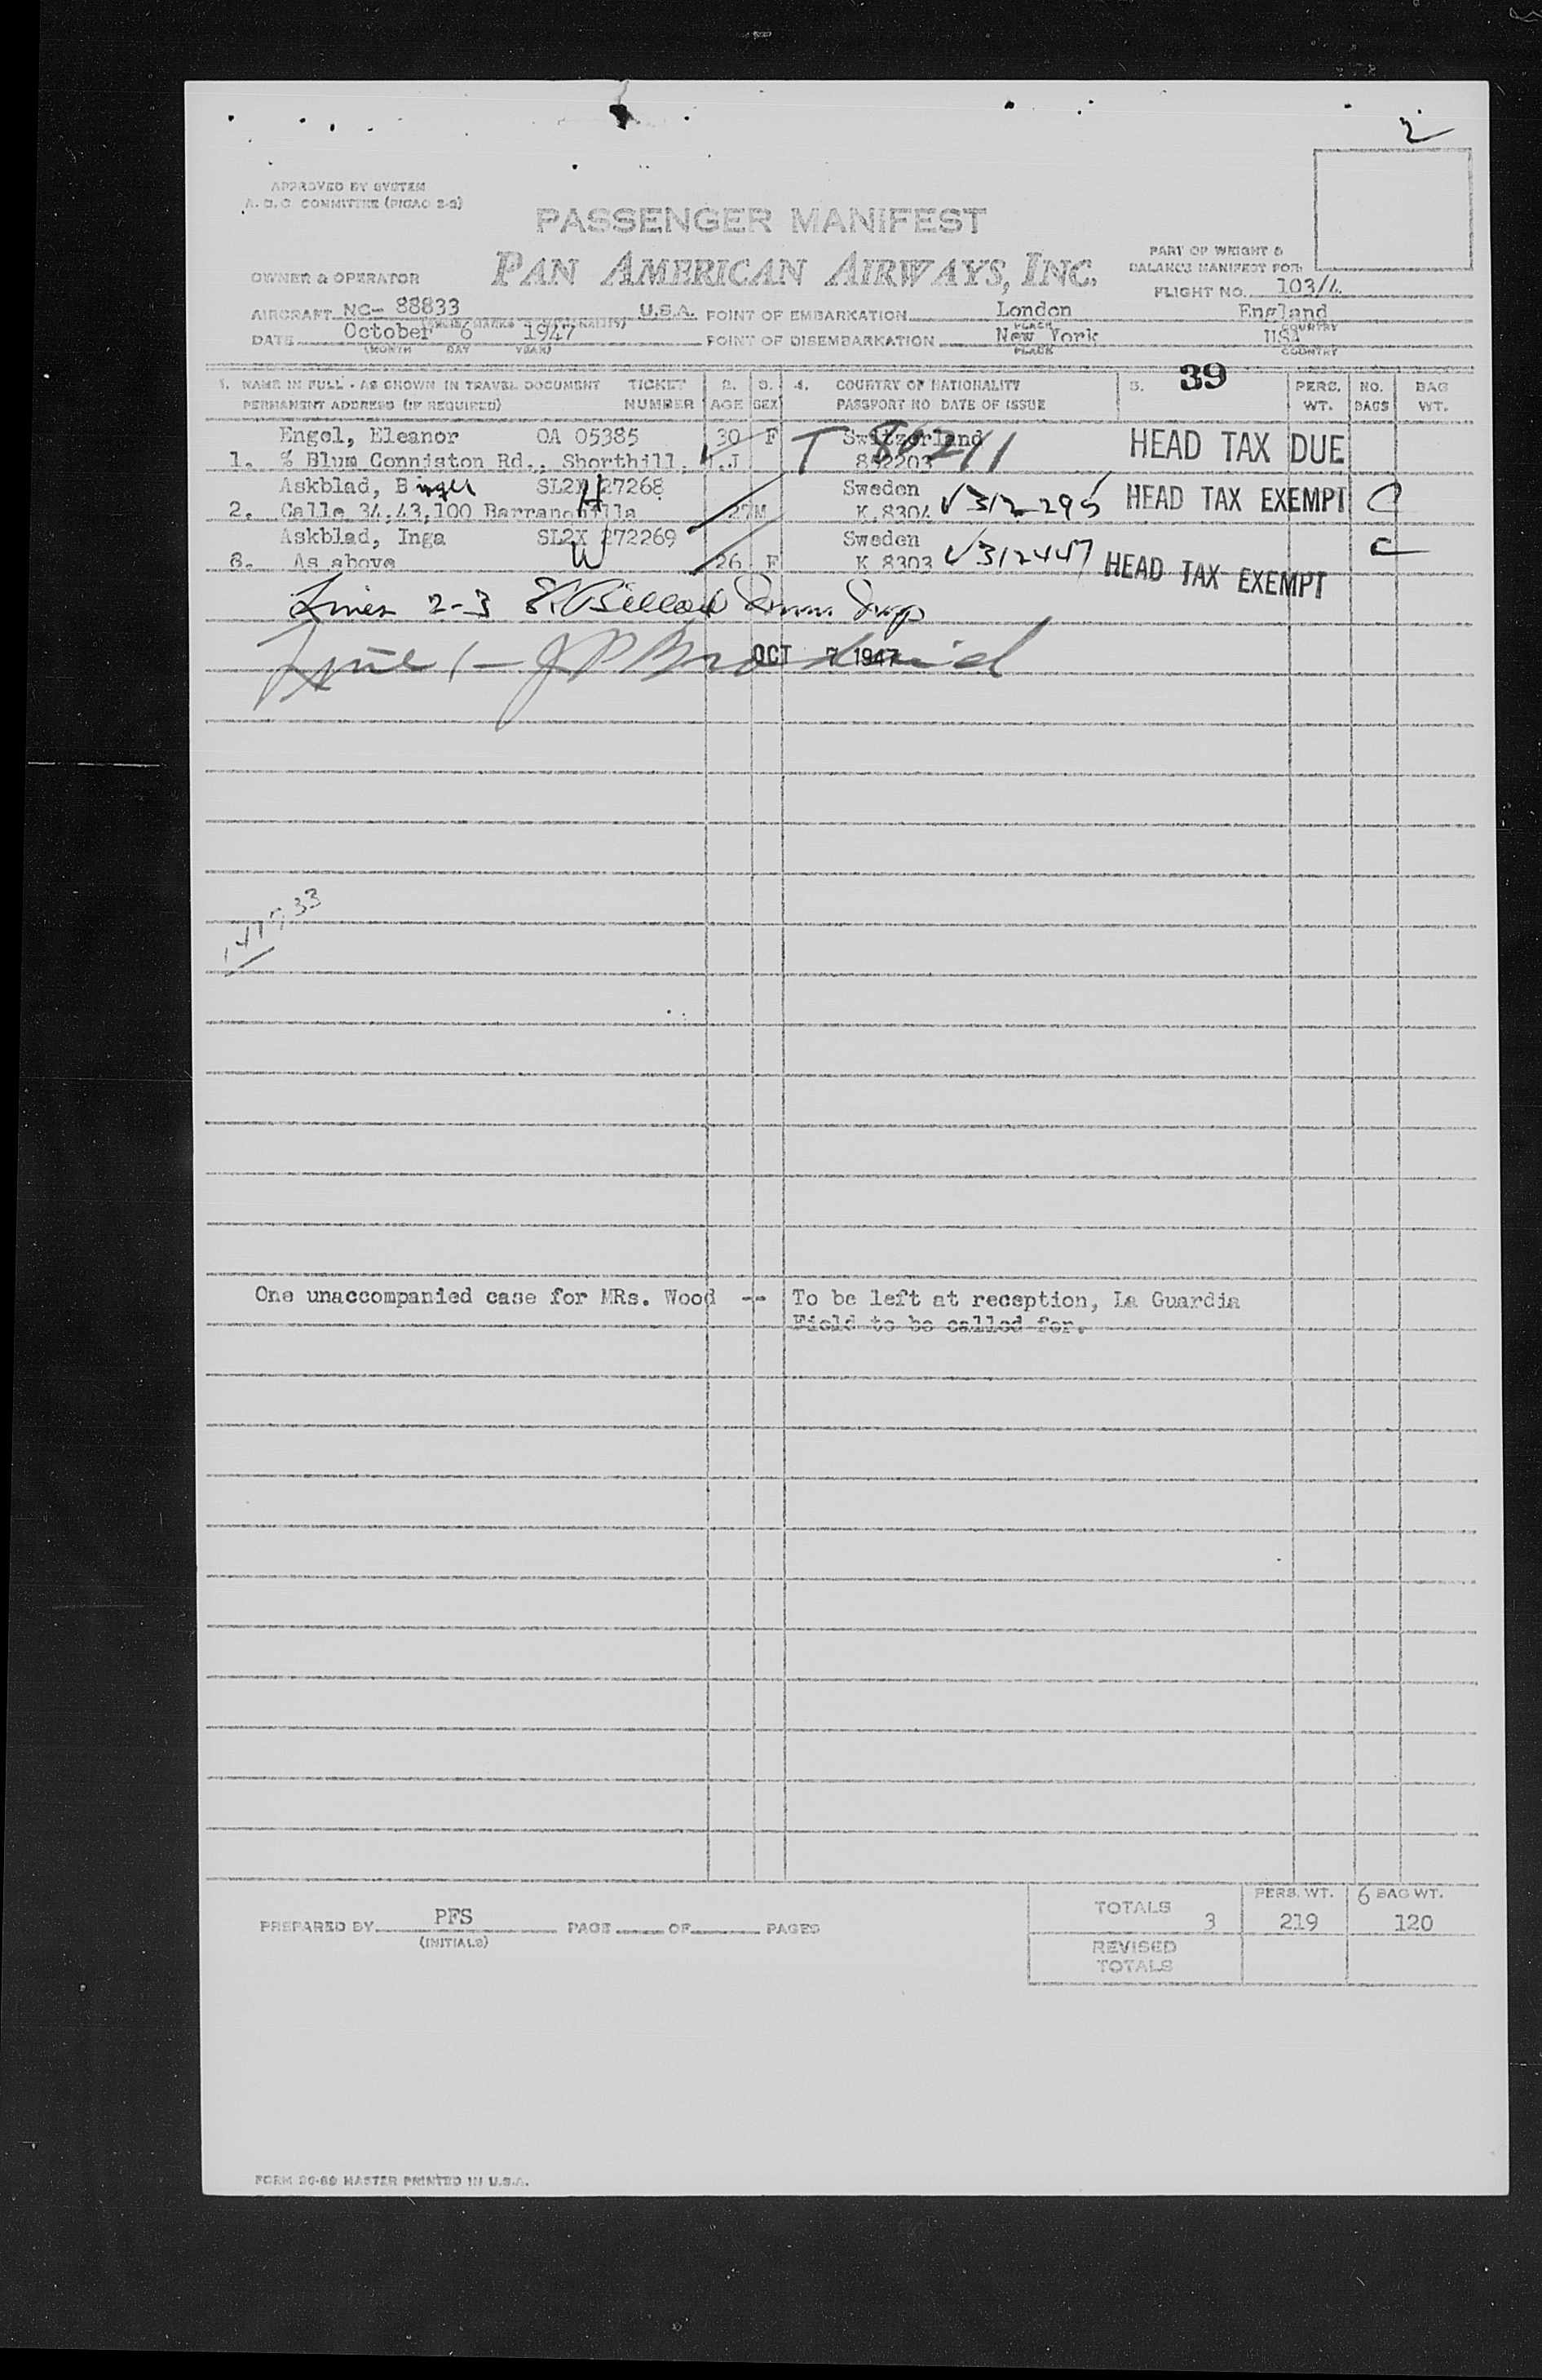 2
APPROVED BY SYSTEM
A. O. C COMMITTEE (PICAO 2-2)
PASSENGER MANIFEST
PAN AMERICAN AIRWAYS, INC.
OWNER & OPERATOR
PART OF WEIGHT &
BALANCE MANIFEST FOR:
FLIGHT NO. 103/4
AIRCRAFT NC- 88833 U.S.A. POINT OF EMBARKATION London England
PLACE COUNTRY
DATE October 6 1947 POINT OF DISEMBARKATION New York USA
(MONTH DAY YEAR) PLACE COUNTRY
39
1. NAME IN FULL - AS SHOWN IN TRAVEL DOCUMENT TICKET 2. 3. 4. COUNTRY OF NATIONALITY 5. PERS. NO. BAG
PERMANENT ADDRESS (IF REQUIRED) NUMBER AGE SEX PASSPORT NO DATE OF ISSUE WT. BAGS WT.
Engel, Eleanor OA 05385 30 F Switzerland T 80211 HEAD TAX DUE
1. % Blum Conniston Rd., Shorthill, N.J 852203
Askblad, Binger SL2X 27268 Sweden HEAD TAX EXEMPT C
2. Calle 34,43,100 Barranquilla H 27M K.8304 V312295
Askblad, Inga SL2X 272269 Sweden C
3. As above W 26 F K 8303 V312447 HEAD TAX EXEMPT
Lines 2-3
Line 1 - J P
OCT 7 1947
One unaccompanied case for MRs. Wood -- To be left at reception, La Guardia
Field to be called for.
PREPARED BY PFS PAGE OF PAGES
(INITIALS)
TOTALS 3 PERS. WT. 219 6 BAG WT. 120
REVISED
TOTALS
FORM 26-69 MASTER PRINTED IN U.S.A.